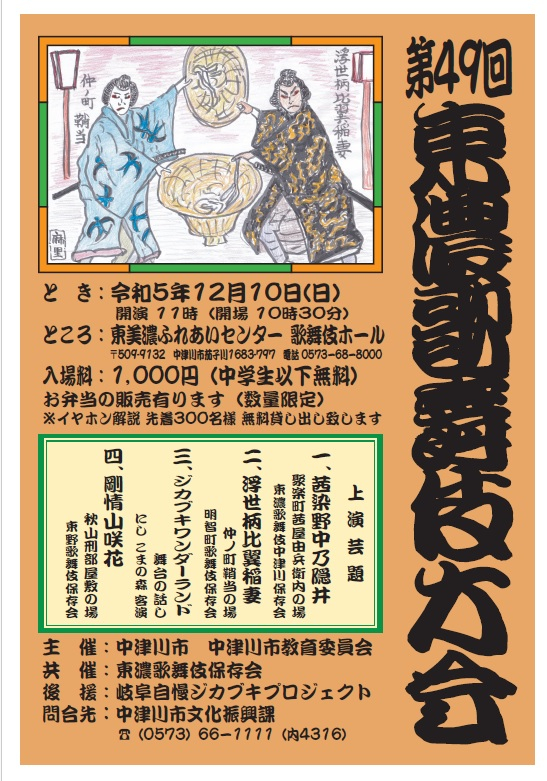 第49回
東濃歌舞伎大会
浮世柄比翼稲妻
仲ノ町 鞘当
麻里
と　き：令和5年12月10日(日)
開演 11時（開場 10時30分）
ところ：東美濃ふれあいセンター 歌舞伎ホール
〒509-9132　中津川市茄子川1683-797　電話 0573-68-8000
入場料：1,000円（中学生以下無料）
お弁当の販売有ります（数量限定）
※イヤホン解説 先着300名様 無料貸し出し致します
上演芸題
一、茜染野中乃隠井
聚楽町茜屋由兵衛内の場
東濃歌舞伎中津川保存会
二、浮世柄比翼稲妻
仲ノ町鞘当の場
明智町歌舞伎保存会
三、ジカブキワンダーランド
舞台の話し
にし こまの森 客演
四、剛情山咲花
秋山刑部屋敷の場
東野歌舞伎保存会
主　催：中津川市　中津川市教育委員会
共　催：東濃歌舞伎保存会
後　援：岐阜自慢ジカブキプロジェクト
問合先：中津川市文化振興課
☎（0573）66－1111（内4316）